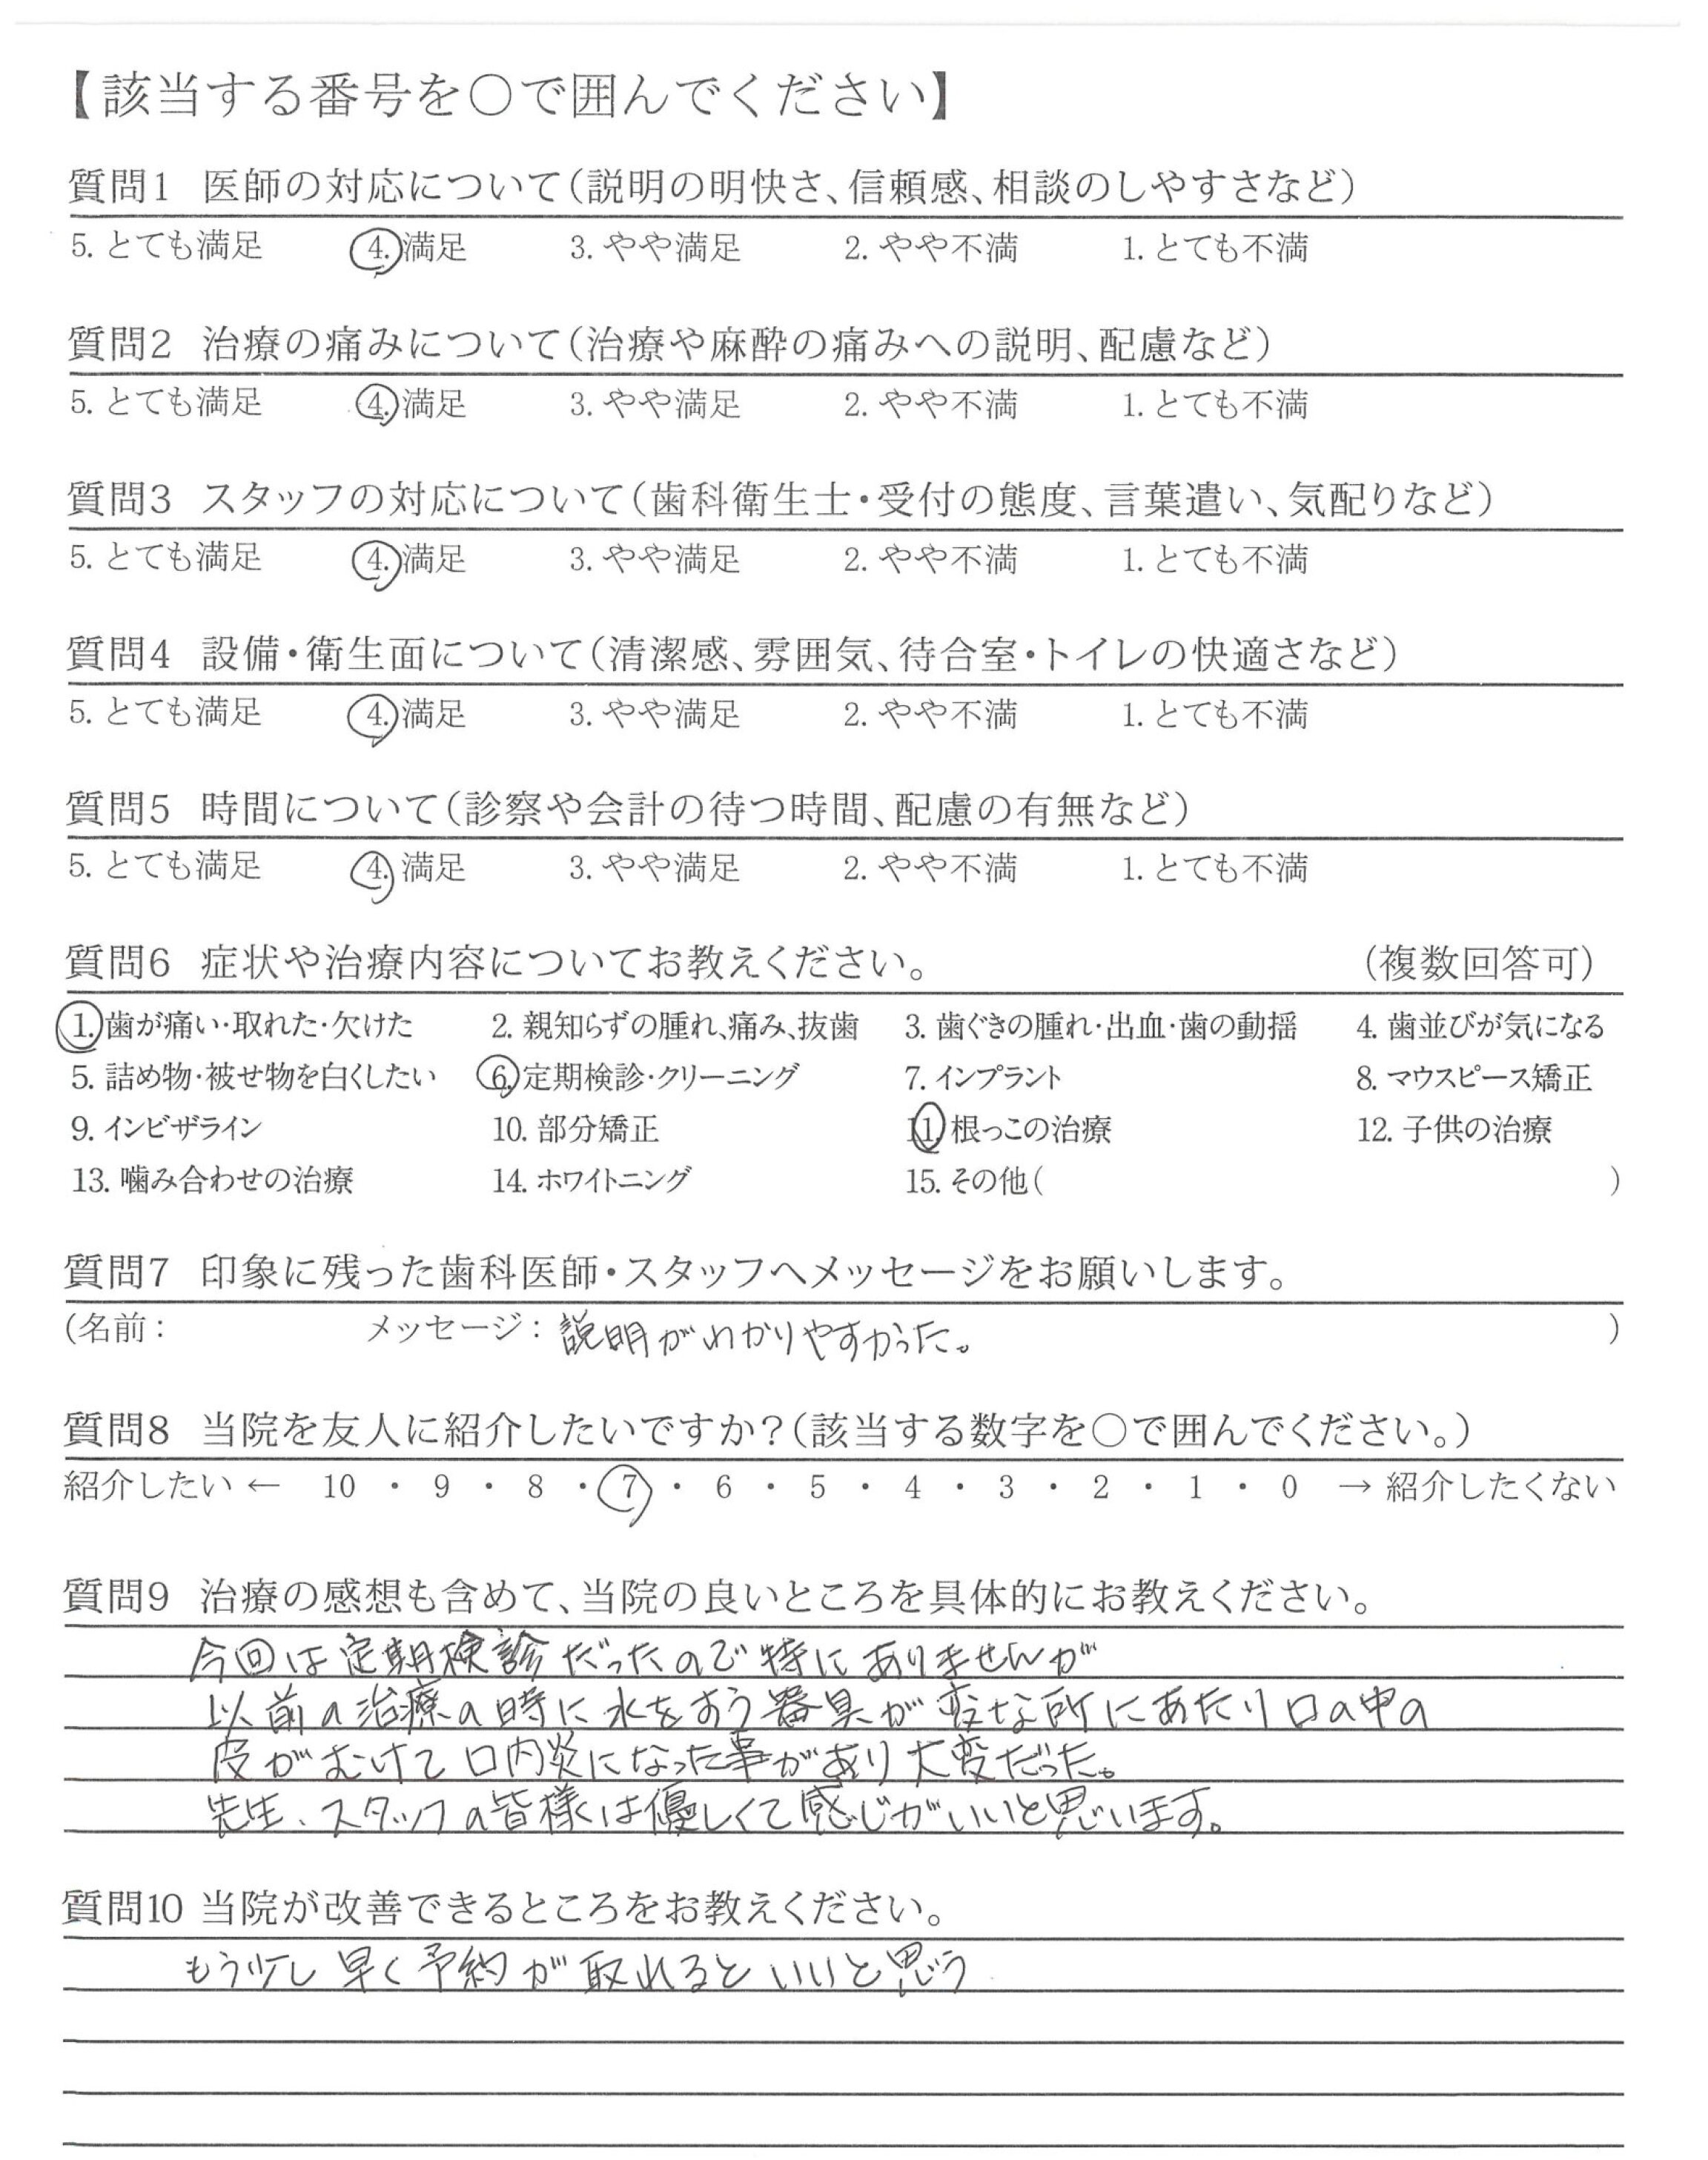 【該当する番号を〇で囲んでください】
質問1 医師の対応について(説明の明快さ、信頼感、相談のしやすさなど)
5. とても満足 4. 満足 3. やや満足 2. やや不満 1. とても不満
質問2 治療の痛みについて(治療や麻酔の痛みへの説明、配慮など)
5. とても満足 4. 満足 3. やや満足 2. やや不満 1. とても不満
質問3 スタッフの対応について(歯科衛生士・受付の態度、言葉遣い、気配りなど)
5. とても満足 4. 満足 3. やや満足 2. やや不満 1. とても不満
質問4 設備・衛生面について(清潔感、雰囲気、待合室・トイレの快適さなど)
5. とても満足 4. 満足 3. やや満足 2. やや不満 1. とても不満
質問5 時間について(診察や会計の待つ時間、配慮の有無など)
5. とても満足 4. 満足 3. やや満足 2. やや不満 1. とても不満
質問6 症状や治療内容についてお教えください。 (複数回答可)
1. 歯が痛い・取れた・欠けた 2. 親知らずの腫れ、痛み、抜歯 3. 歯ぐきの腫れ・出血・歯の動揺 4. 歯並びが気になる
5. 詰め物・被せ物を白くしたい 6. 定期検診・クリーニング 7. インプラント 8. マウスピース矯正
9. インビザライン 10. 部分矯正 11. 根っこの治療 12. 子供の治療
13. 噛み合わせの治療 14. ホワイトニング 15. その他( )
質問7 印象に残った歯科医師・スタッフへメッセージをお願いします。
(名前: メッセージ: 説明がわかりやすかった。 )
質問8 当院を友人に紹介したいですか?(該当する数字を〇で囲んでください。)
紹介したい ← 10 ・ 9 ・ 8 ・ 7 ・ 6 ・ 5 ・ 4 ・ 3 ・ 2 ・ 1 ・ 0 → 紹介したくない
質問9 治療の感想も含めて、当院の良いところを具体的にお教えください。
今回は定期検診だったので特にありませんが
以前の治療の時に水をすう器具が変な所にあたり口の中の
皮がむけて口内炎になった事があり大変だった。
先生、スタッフの皆様は優しくて感じがいいと思います。
質問10 当院が改善できるところをお教えください。
もう少し早く予約が取れるといいと思う